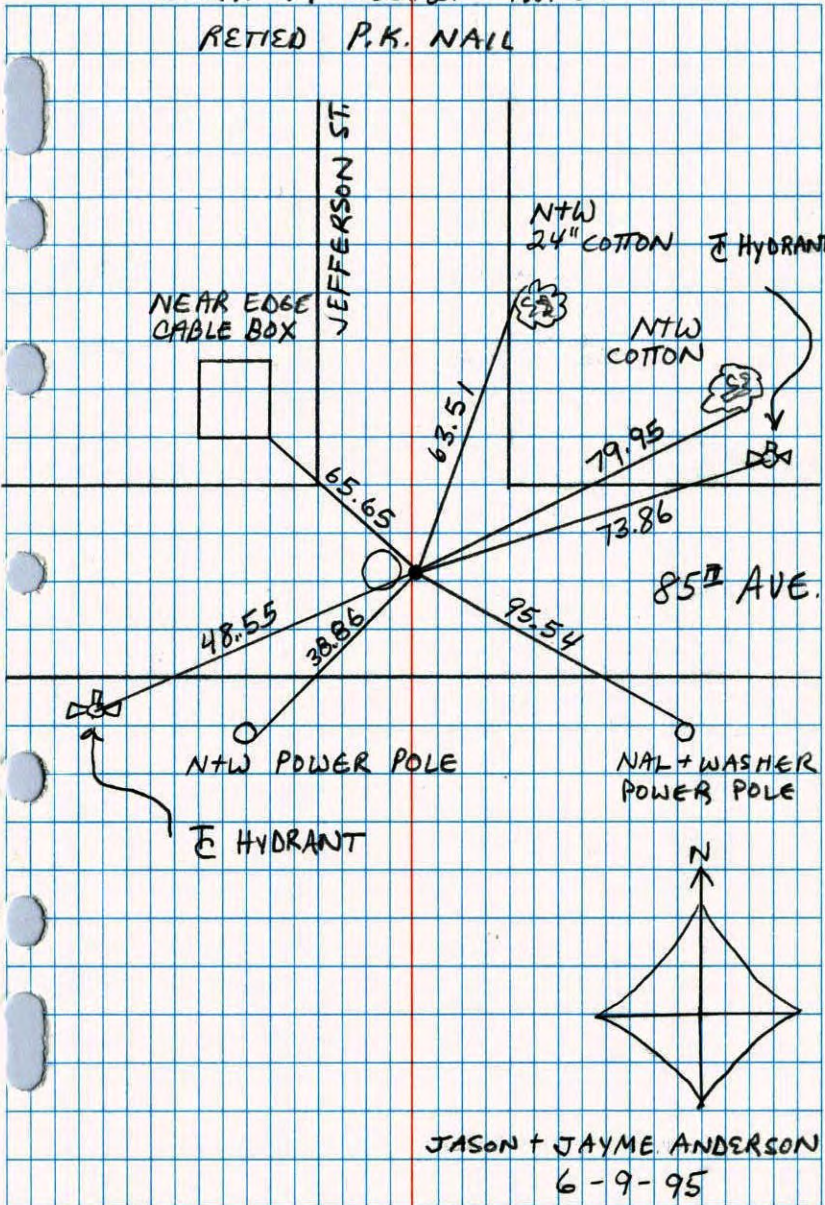 RETIED P.K. NAIL
JEFFERSON ST.
N+W
24" COTTON
HYDRANT
NEAR EDGE
CABLE BOX
N+W
COTTON
63.51
79.95
65.65
73.86
85TH AVE.
48.55
38.86
95.54
N+W POWER POLE
NAL + WASHER
POWER POLE
HYDRANT
N
JASON + JAYME ANDERSON
6-9-95